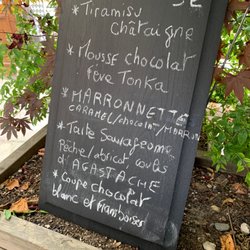 SE
* Tiramisu
Châtaigne
* Mousse chocolat
fève Tonka
* MARRONNETTE
CARAMEL/chocolat/MARRON
* Tarte Sauvageonne
Pêche/abricot, coulis
d'AGASTACHE
* Coupe chocolat
blanc et framboises